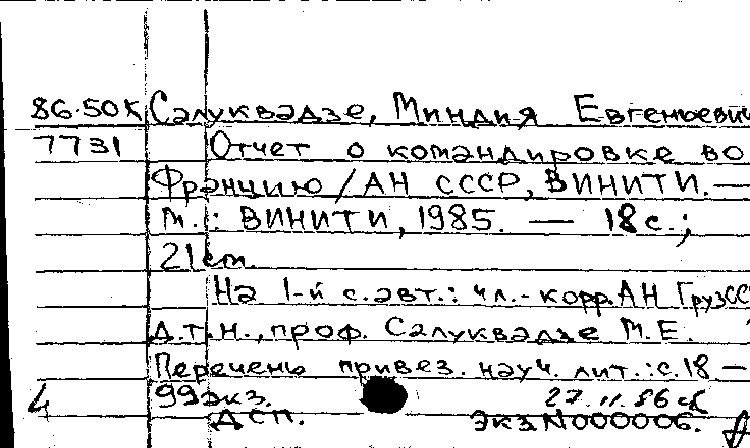 86-50К Салуквадзе, Миндия Евгеньевич
7731 Отчет о командировке во
Францию / АН СССР, ВИНИТИ. —
М.: ВИНИТИ, 1985. — 18 с.;
21 см.
На 1-й с. авт.: чл.-корр. АН ГрузСС
д.т.н., проф. Салуквадзе М.Е.
Перечень привез. науч. лит.: с. 18 —
99 экз. 27.11.86
4 ДСП. Экз N000006.